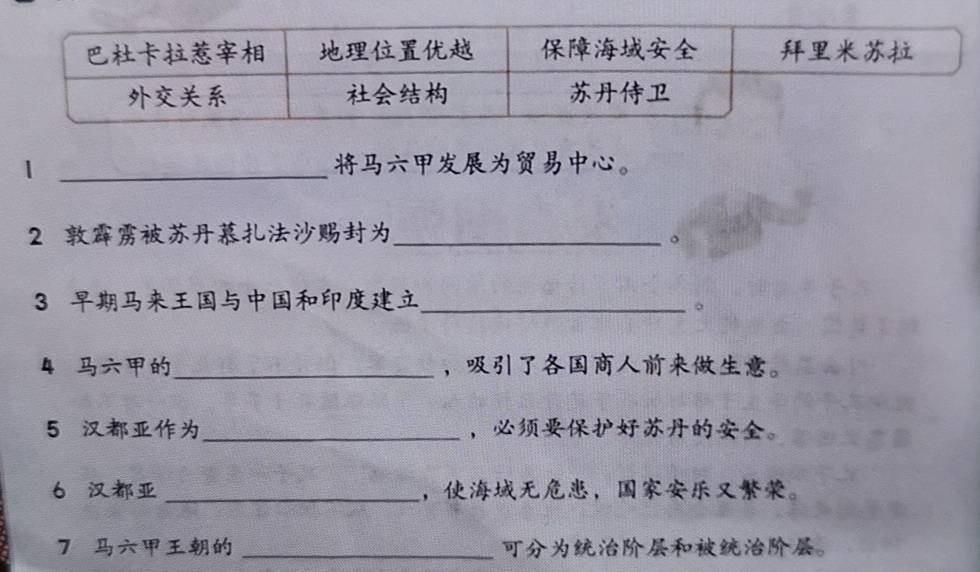 巴杜卡拉惹宰相 地理位置优越 保障海域安全 拜里米苏拉
外交关系 社会结构 苏丹侍卫
1 ____________将马六甲发展为贸易中心。
2 敦霹雳被苏丹慕扎法沙赐封为____________。
3 早期马来王国与中国和印度建立____________。
4 马六甲的____________，吸引了各国商人前来做生意。
5 汉都亚作为____________，必须要保护好苏丹的安全。
6 汉都亚____________，使海域无危患，国家安乐又繁荣。
7 马六甲王朝的____________可分为统治阶层和被统治阶层。